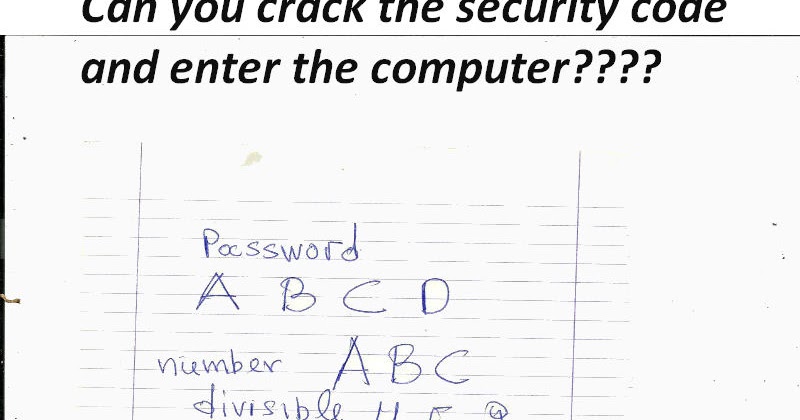 Can you crack the security code
and enter the computer????
Password
A B C D
number ABC
divisible